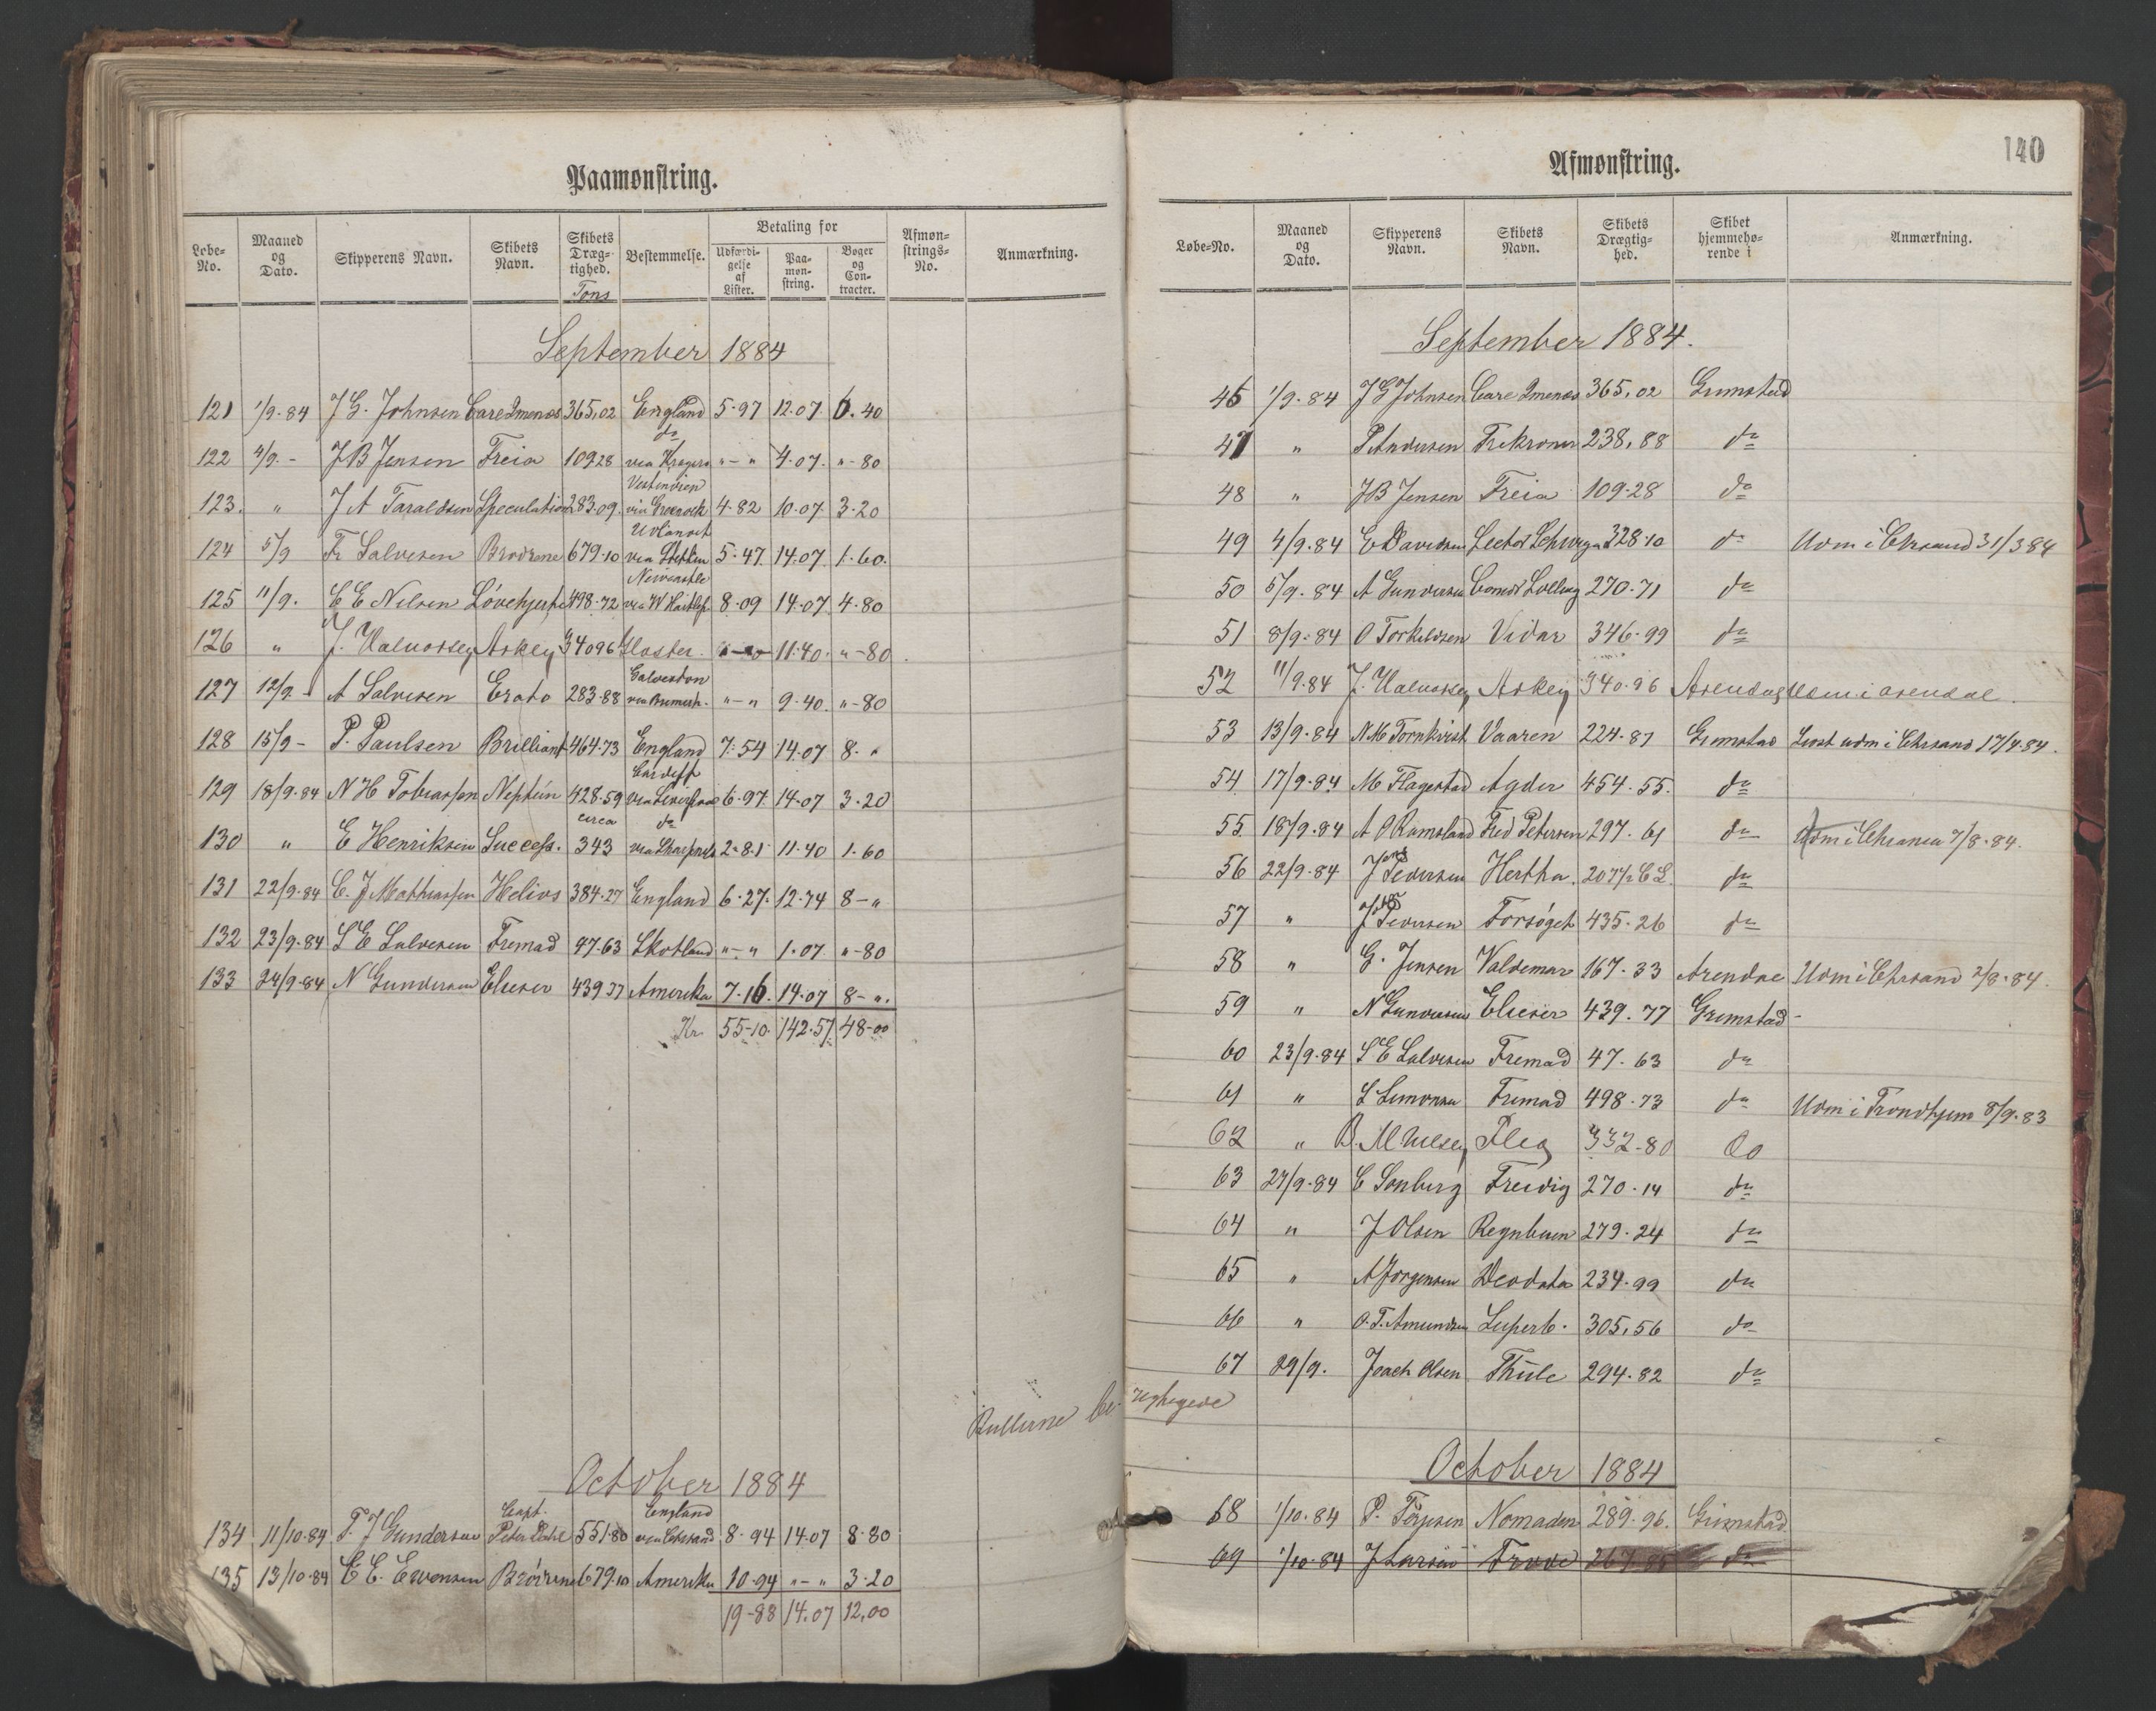 Paamønstring.
Løbe-No. | Maaned og Dato. | Skipperens Navn. | Skibets Navn. | Skibets Dræg-tighed. Tons | Bestemmelse. | Betaling for: Udfærdi-gelse af Lister. | Paa-møn-string. | Bøger og Con-tracter. | Afmøn-strings-No. | Anmærkning.
September 1884
121 1/9-84 J G. Johnsen Care Imenæs 365,02 England 5-97 12.07 6.40
122 4/9 - J B Jensen Freia 109 28 do via Kragerø "-" 4.07. "-80
123. " J A Taraldsen Speculation 283.09. Vestindien via Greenock 4.82 10.07. 3.20
124 5/9 Fr Salvesen Brødrene 679.10 via Stettin 5.47. 14.07. 1.60.
125 11/9. C E Nilsen Løvehjerte 498.72 Newcastle via W Hartlep. 8.09 14.07. 4.80
126 " J. Halvorsen Askey 340 96 Gloster. 11.40. "-80.
127 12/9 - A Salvesen Erato 283.88 Galveston via "-" 9.40. "-80
128 15/9 - P. Paulsen Brilliant 464.73 England 7.54 14.07 8. "
129 18/9.84 N H Tobiassen Neptun 428.59 Cardiff via 6.97. 14.07 3.20
130 " E Henriksen Success. circa 343 do via 2.81 11.40 1.60
131 22/9.84 C. J Mathiassen Helios 384.27 England 6.27. 12.74 8-"
132 23/9.84 S E Salvesen Fremad 47.63 Skotland "-" 1.07. "-80
133 24/9.84 N Gundersen Elieser 439 77 Amerika 7.16. 14.07 8-".
Kr. 55-10. 142.57 48-00
Rullerne be-
October 1884
134 11/10.84 T. J Gundersen Capt. Peter Dahl 551.80 England via Chrsand 8.94 14.07 8.80
135 13/10.84 C E. Evensen Brødrene 679.10 Amerika 10.94 "-" 3.20
19-88 14.07 12,00
140
Afmønstring.
Løbe-No. | Maaned og Dato. | Skipperens Navn. | Skibets Navn. | Skibets Drægtig-hed. | Skibet hjemmehø-rende i | Anmærkning.
September 1884.
46 1/9.84 J G Johnsen Care Imenæs 365.02 Grimstad
47 " P Andersen Trekroner 238,88 do
48 " J B Jensen Freia 109.28 do
49 4/9.84 E Davidsen Lector Schweigaard 328.10 do Udm i Chrsand 31/3 84
50 5/9.84 A Gundersen Comdr Sølling 270.71 do
51 8/9.84 O Torkildsen Vidar 346.99 do
52 11/9.84 J. Halvorsen Askey 340.96 Arendal Udm. i Arendal.
53 13/9.84 N M Tørnkvist Vaaren 224.87 Grimstad Sidst udm i Chrsand 17/4.84.
54 17/9.84 M Flagestad Agder 454.55. do
55 18/9.84 A O Ramsland Fred Petersen 297.61 do Udm i Chrania 7/8.84.
56 22/9.84 J Pedersen Hertha. 207 1/2 C L. do
57 " J Pedersen Forsøget 435.26 do
58 " G. Jensen Valdemar 167.33 Arendal Udm i Chrsand 2/8.84.
59 " N Gundersen Elieser 439.77 Grimstad -
60 23/9.84 S E Salvesen Fremad 47.63 do
61 " S Simonsen Fremad 498.73 do Udm i Trondhjem 8/9.83
62 " B. M Nilsen Flid 332.80 do
63 27/9.84 C Sonberg Freidig 270.14 do
64 " J Olsen Regnbuen 279.24 do
65 " A Jørgensen Deodata 234.99 do
66 " O. T. Amundsen Superb. 305,56 do
67 29/9. Joach Olsen Thule 294.82 do
October 1884
68 1/10.84 P. Tørjesen Nomaden 289.96. Grimstad
69 1/10.84 J Larsen Frode 267.85 do